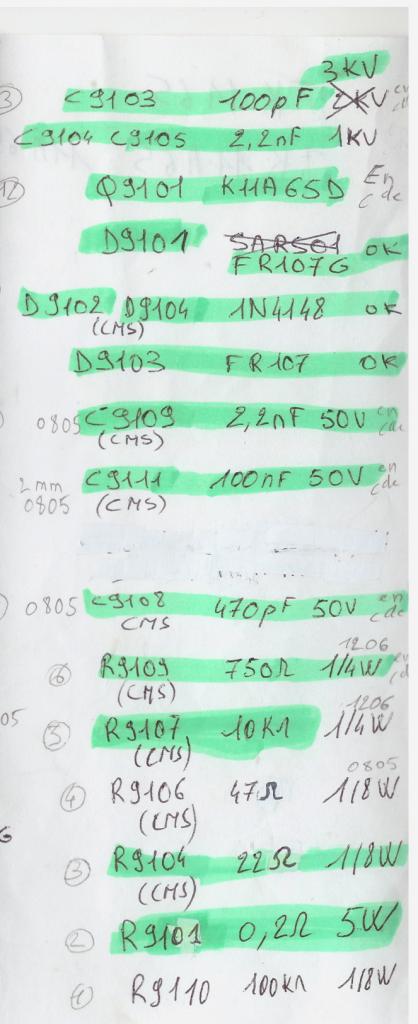 3KV
③ C9103 100pF 2KV en c
C9104 C9105 2,2nF 1KV
⑫ Q9101 K11A65D En cde
D9101 SARS01 OK
FR107G
D9102 D9104 1N4148 OK
(CMS)
D9103 FR107 OK
0805 C9109 2,2nF 50V en cde
(CMS)
2mm C9111 100nF 50V en cde
0805 (CMS)
0805 C9108 470pF 50V en cde
CMS
1206
⑥ R9109 750Ω 1/4W en cd
(CMS)
1206
05 ⑤ R9107 10KΩ 1/4W
(CMS)
0805
④ R9106 47Ω 1/8W
(CMS)
G
③ R9104 22Ω 1/8W
(CMS)
② R9101 0,2Ω 5W
① R9110 100KΩ 1/8W